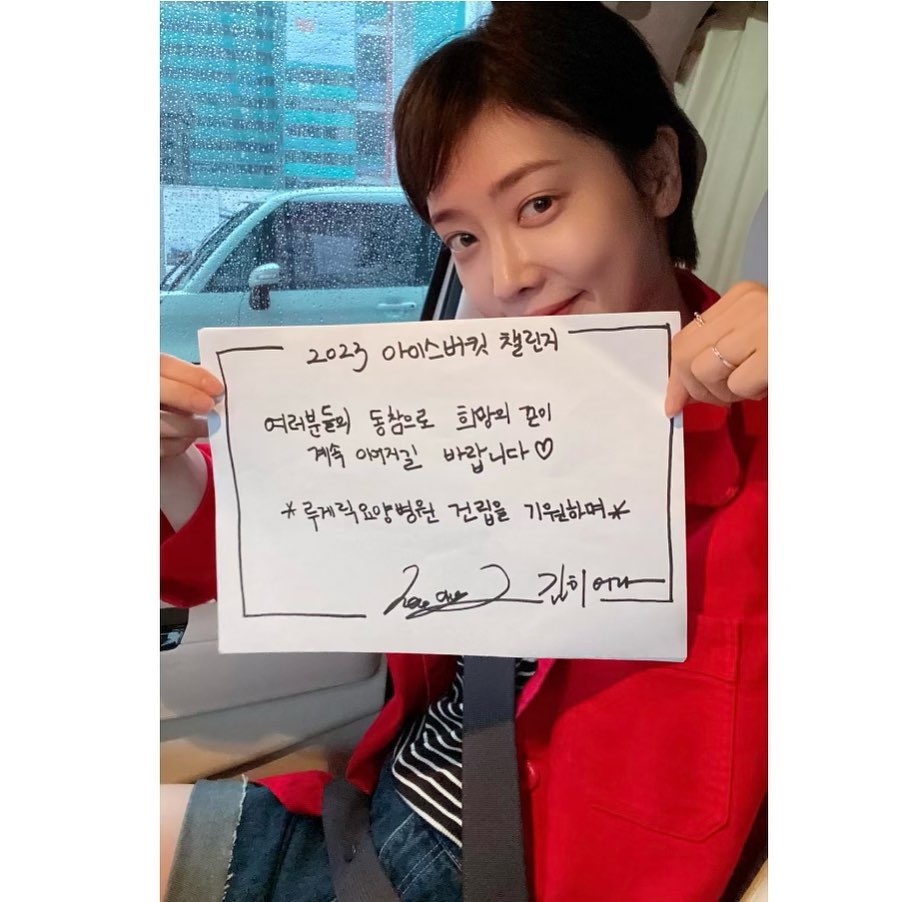 2023 아이스버킷 챌린지
여러분들의 동참으로 희망의 끈이
계속 이어지길 바랍니다♡
*루게릭요양병원 건립을 기원하며*
김히어라